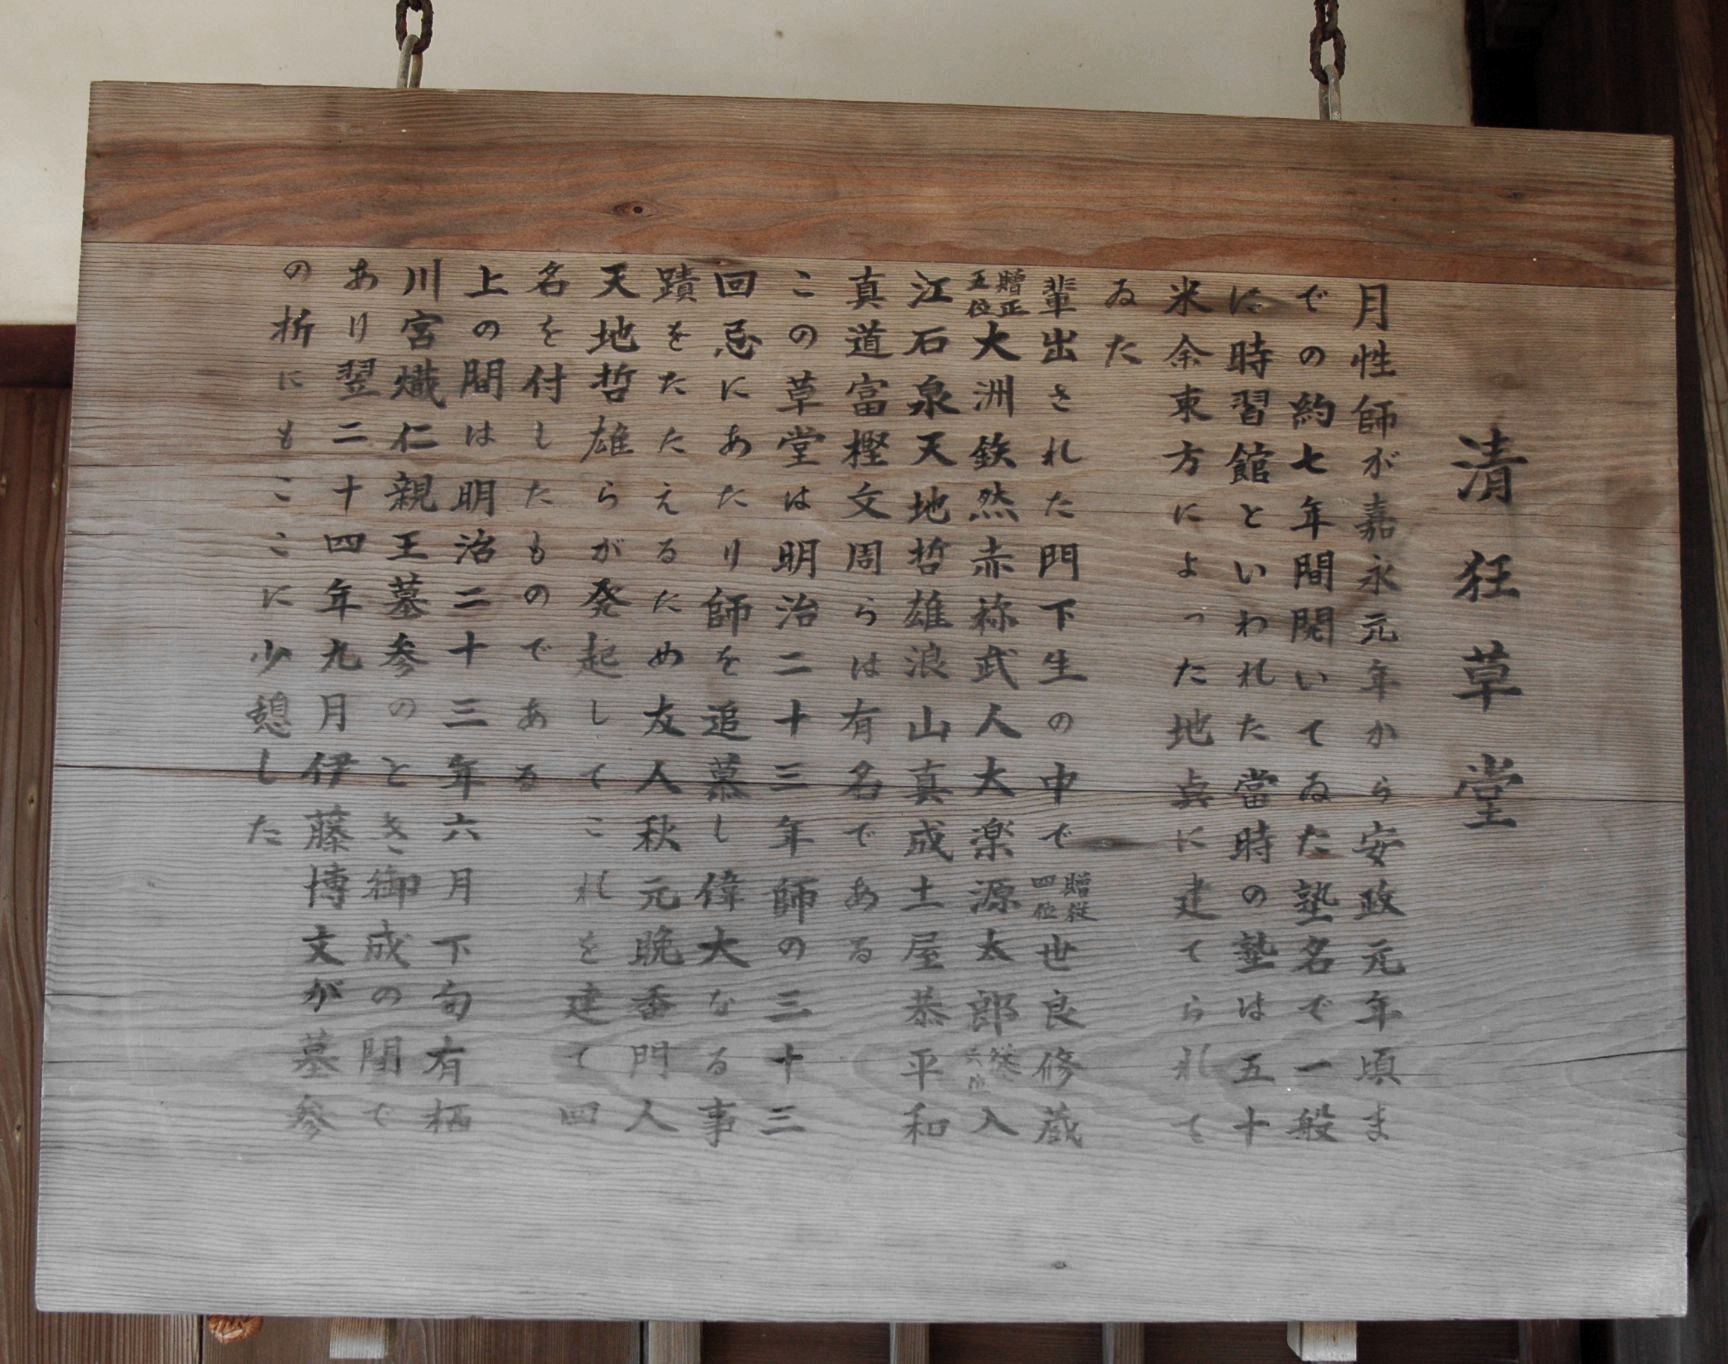 清狂草堂
月性師が嘉永元年から安政元年頃ま
での約七年間開いてゐた塾名で一般
に時習館といわれた當時の塾は五十
米余東方によった地点に建てられて
ゐた
輩出された門下生の中で贈従四位世良修蔵
贈正五位大洲鉄然赤祢武人大楽源太郎 入
江石泉天地哲雄浪山真成土屋恭平和
真道富樫文周らは有名である
この草堂は明治二十三年師の三十三
回忌にあたり師を追慕し偉大なる事
蹟をたたえるため友人秋元晩香門人
天地哲雄らが発起してこれを建て四
名を付したものである
上の間は明治二十三年六月下旬有栖
川宮熾仁親王墓参のとき御成の間で
あり翌二十四年九月伊藤博文が墓参
の折にもここに少憩した